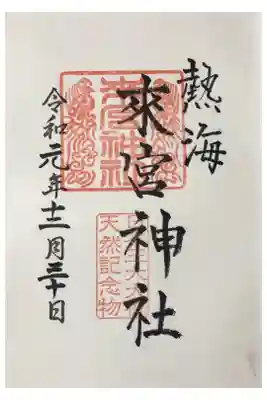 熱海
來宮神社
令和元年十二月三十日
天然記念物